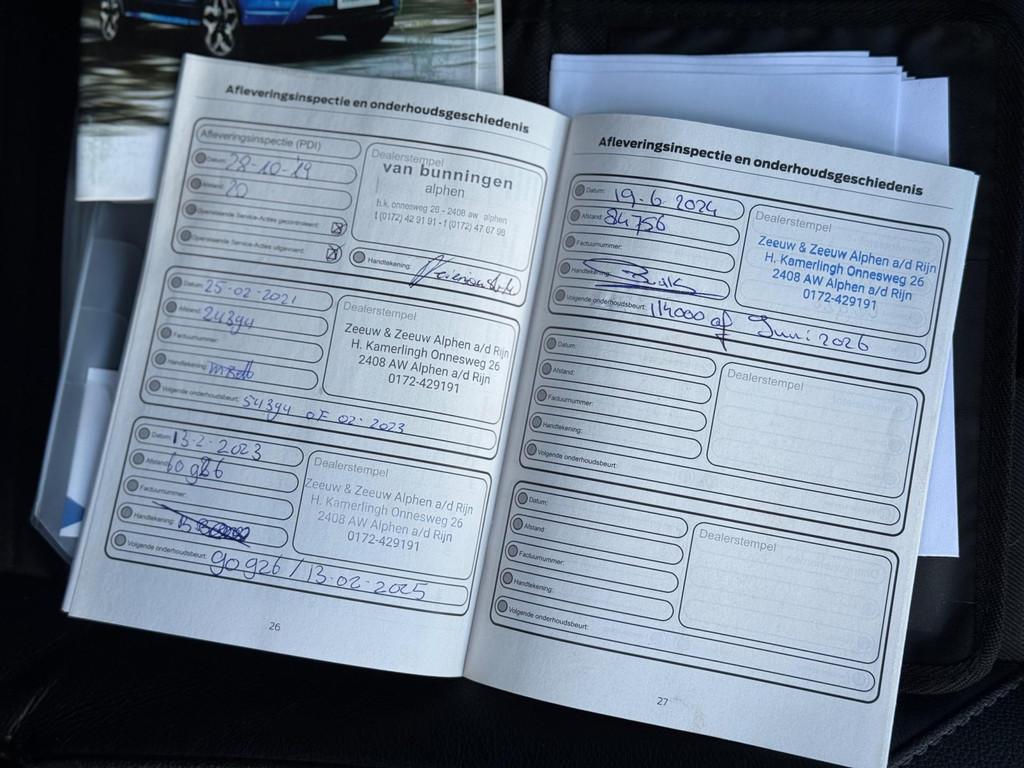 Afleveringsinspectie en onderhoudsgeschiedenis
Afleveringsinspectie (PDI)
Datum: 28-10-19
Afstand: 20
Openstaande Service-Acties gecontroleerd: ☒
Openstaande Service-Acties uitgevoerd: ☒
Dealerstempel
van bunningen
alphen
h.k. onnesweg 26 - 2408 aw alphen
t (0172) 42 91 91 - f (0172) 47 67 98
Handtekening:
Datum: 25-02-2021
Afstand: 24394
Factuurnummer:
Handtekening:
Volgende onderhoudsbeurt: 54394 OF 02-2023
Dealerstempel
Zeeuw & Zeeuw Alphen a/d Rijn
H. Kamerlingh Onnesweg 26
2408 AW Alphen a/d Rijn
0172-429191
Datum: 13-2-2023
Afstand: 60926
Factuurnummer:
Handtekening:
Volgende onderhoudsbeurt: 90926 / 13-02-2025
Dealerstempel
Zeeuw & Zeeuw Alphen a/d Rijn
H. Kamerlingh Onnesweg 26
2408 AW Alphen a/d Rijn
0172-429191
26
Afleveringsinspectie en onderhoudsgeschiedenis
Datum: 19-6-2024
Afstand: 84756
Factuurnummer:
Handtekening:
Volgende onderhoudsbeurt: 114000 of Juni 2026
Dealerstempel
Zeeuw & Zeeuw Alphen a/d Rijn
H. Kamerlingh Onnesweg 26
2408 AW Alphen a/d Rijn
0172-429191
Datum:
Afstand:
Factuurnummer:
Handtekening:
Volgende onderhoudsbeurt:
Dealerstempel
Datum:
Afstand:
Factuurnummer:
Handtekening:
Volgende onderhoudsbeurt:
Dealerstempel
27